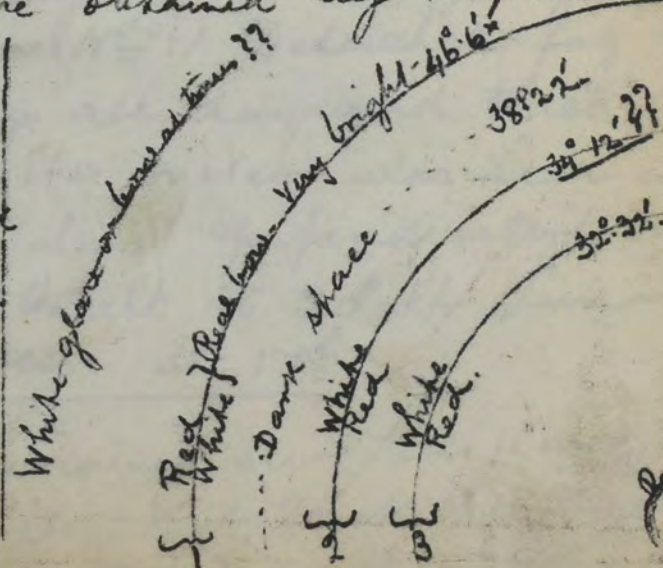 White glare or bow at times??
Red } Real bow - Very bright - 46°.6'
White
Dark space
38°22'
White
Red
34°12'??
White
Red.
32°.32'.
2
3